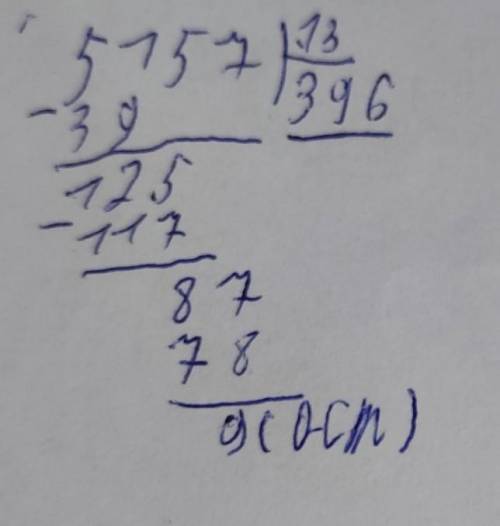 5157 13
- 39 396
125
- 117
87
78
9 (ост)